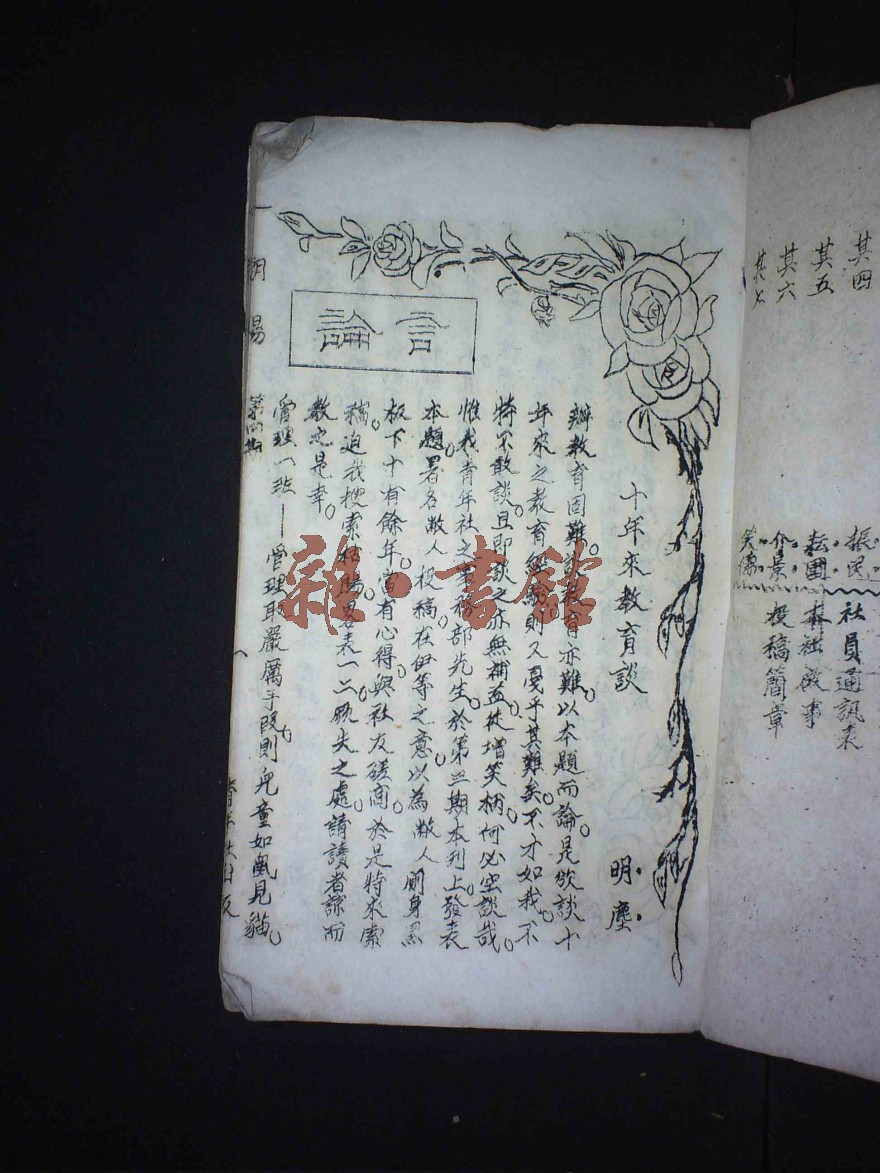 其四
其五
其六
其七
振民
耘國
介景
笑儒
社員通訊表
本社啟事
投稿簡章
言論
十年來教育談
明塵
辦教育固難。談教育亦難。以本題而論。是欲談十
年來之教育經驗。則又憂乎其難矣。不才如我。不
特不敢談。且即談之。亦無補益。徒增笑柄。何必空談哉。
惟我青年社之 務部先生。於第三期本刊上。發表
本題。署名敝人投稿。在伊等之意。以為敝人廁身黑
板下十有餘年。 有心得。與社友磋商。於是特來索
稿。迫我搜索枯腸。畧表一二。欲失之處。請讀者諒而
教之是幸。
管理一班—管理取嚴厲手段。則兒童如鼠見貓。
陽
第四期
一
青年社出版
雜·書館